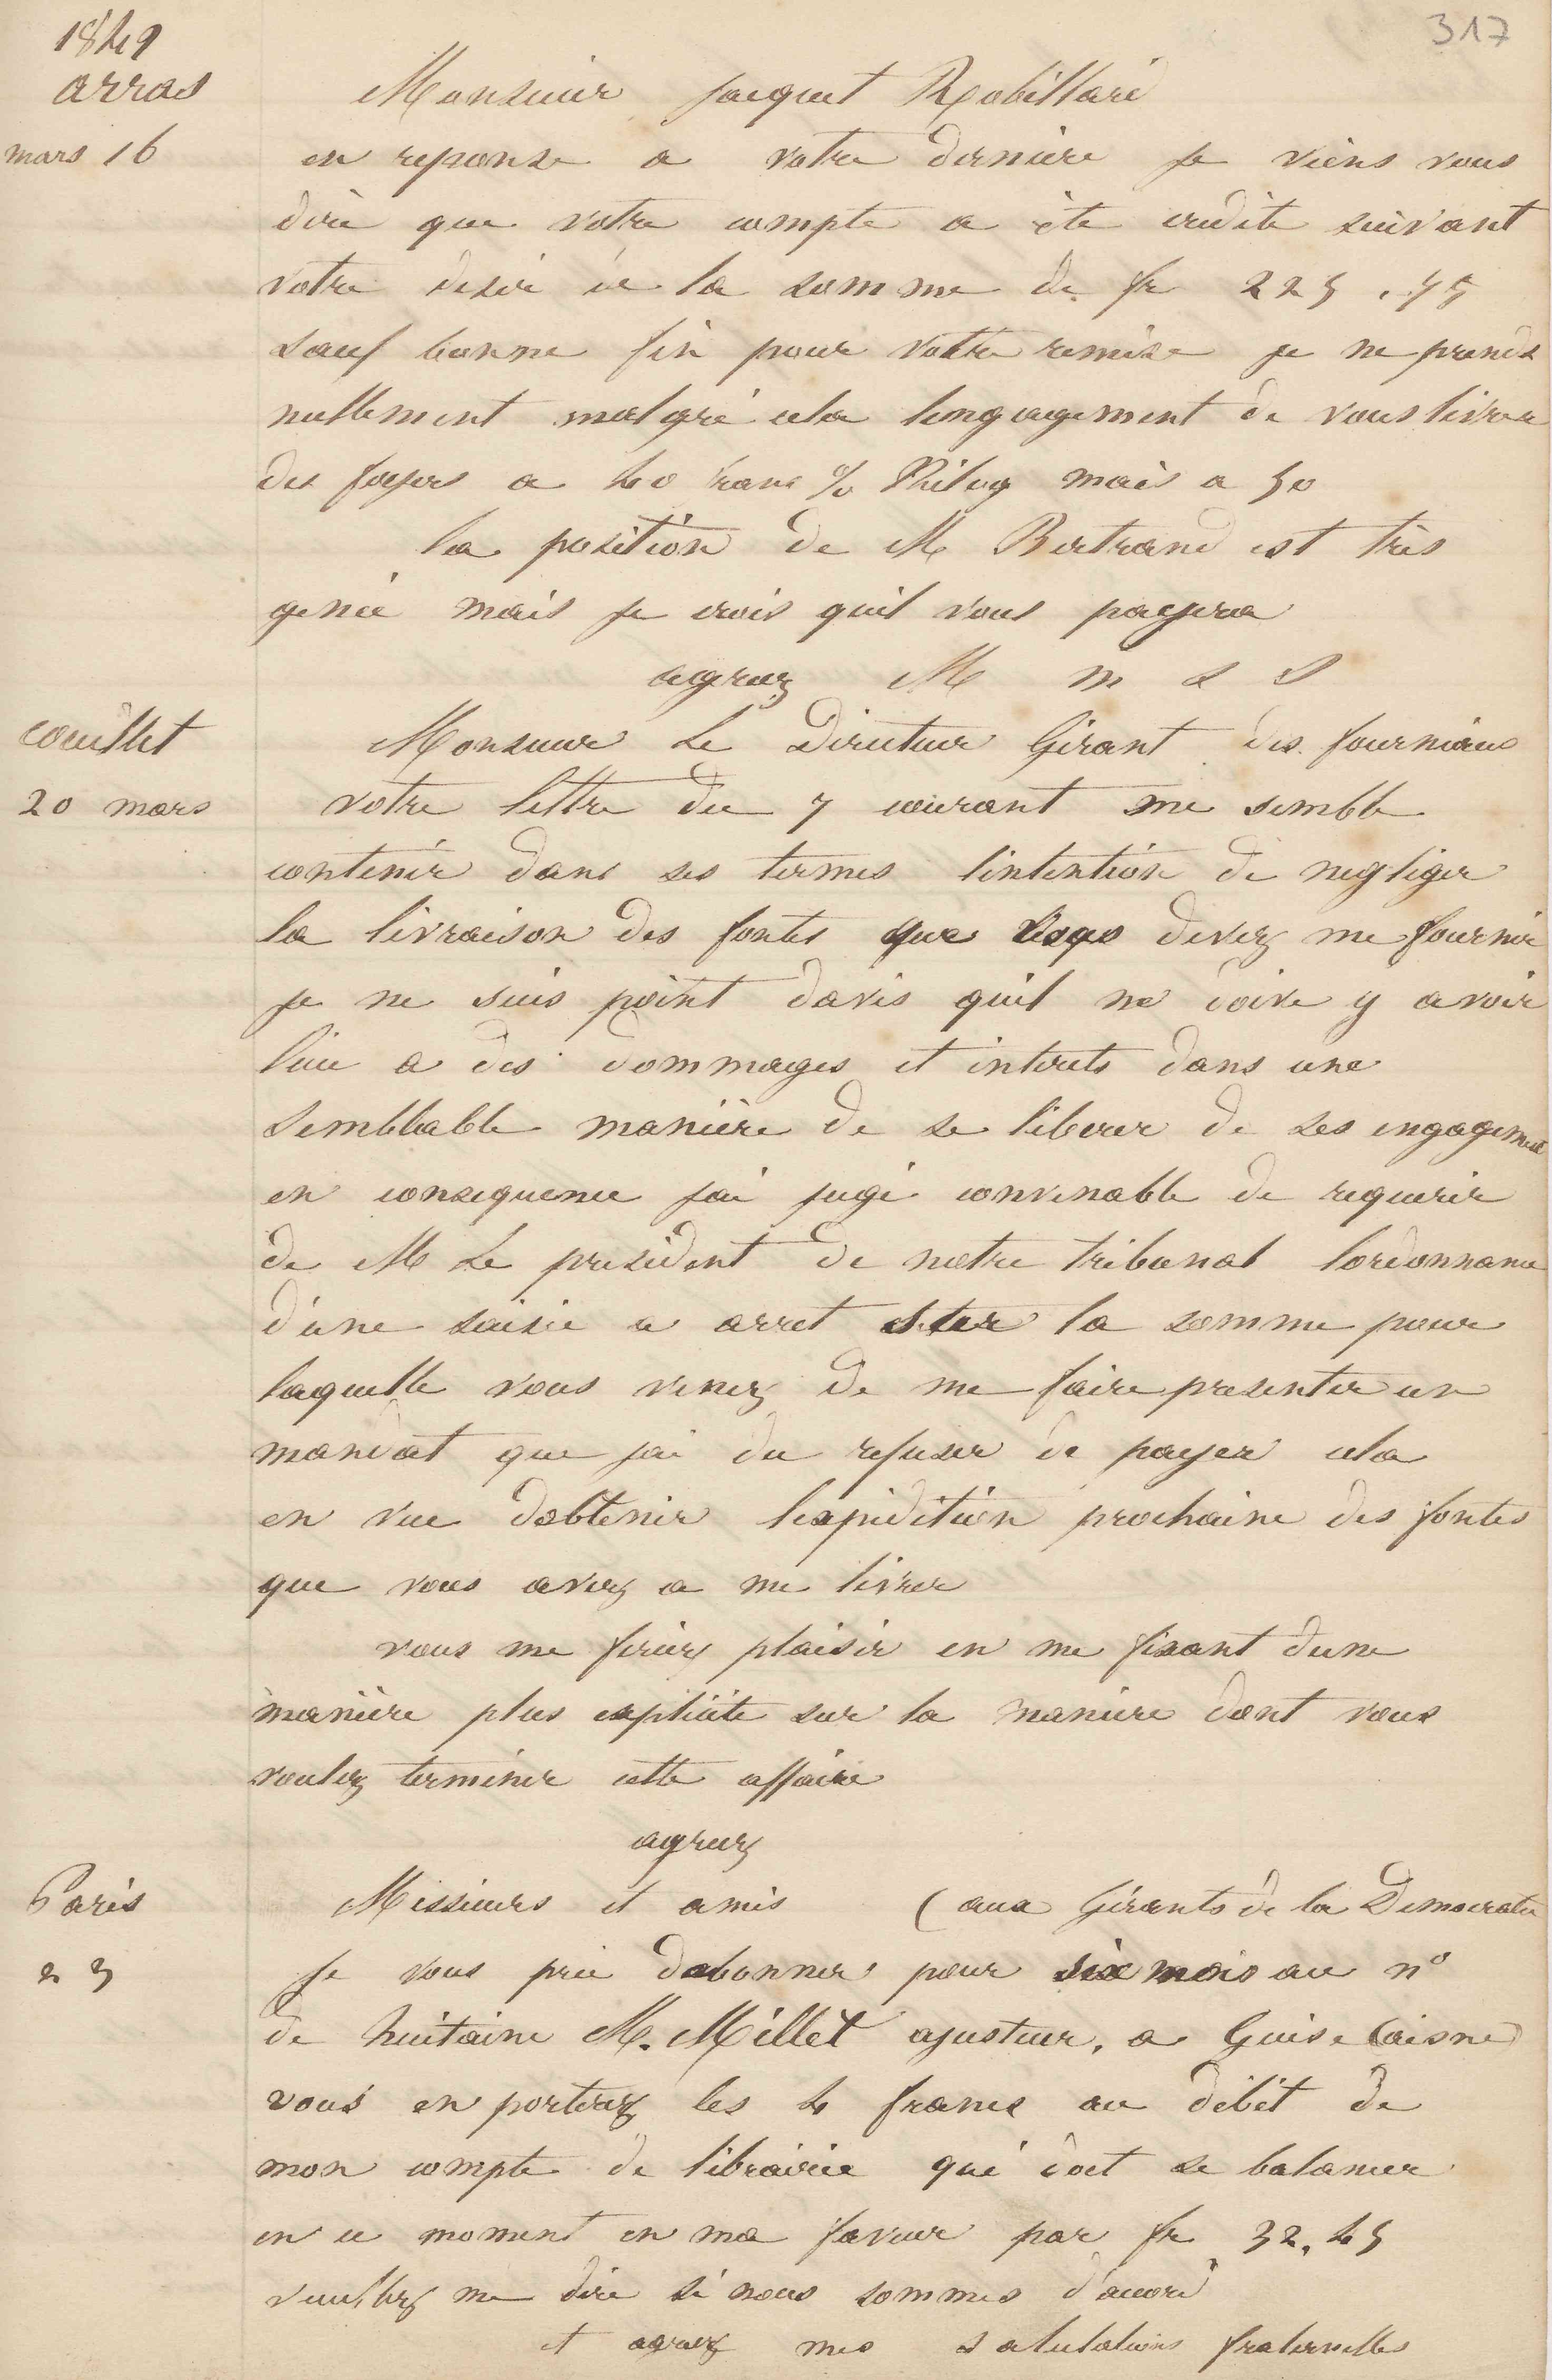 317
1849
arras
mars 16
Monsieur Jacquet Robillard
en reponse a votre derniere je viens vous
dire que votre compte a été credité suivant
votre desir de la somme de fr 225.75
sauf bonne fin pour votre remise je ne prends
nullement malgré cela lengagement de vous livrer
des foyers a 40 franc % Kilog mais a 50
la position de M Bertrand est très
genée mais je crois quil vous payera
agreez M m s s
couillet
20 mars
Monsieur Le Directeur Gérant des fourneaux
votre lettre du 7 courant me semble
contenir dans ses termes lintention de negliger
la livraison des fontes que vous devez me fournir
je ne suis point davis quil ne doive y avoir
lieu a des dommages et interets dans une
semblable manière de se liberer de ses engagements
en consequence jai jugé convenable de requerir
de M Le president de notre tribunal lordonnance
d'une saisie a arret ster la somme pour
laquelle vous venez de me faire presenter un
mandat que jai du refuser de payer cela
en vue dobtenir lexpédition prochaine des fontes
que vous avez a me livrer
vous me feriez plaisir en me fixant dune
manière plus explicite sur la maniere dont vous
voulez terminer cette affaire
agreez
Paris
25
Messieurs et amis (aux Gérants de la Democratie
Je vous prie dabonner pour six mois au n°
de huitaine M. Millet ajusteur, a Guise (aisne)
vous en porterez les 4 francs au débit de
mon compte de librairie qui doit se balancer
en ce moment en ma faveur par fr 32,45
veuillez me dire si nous sommes d'accord
et agreez mes salutations fraternelles